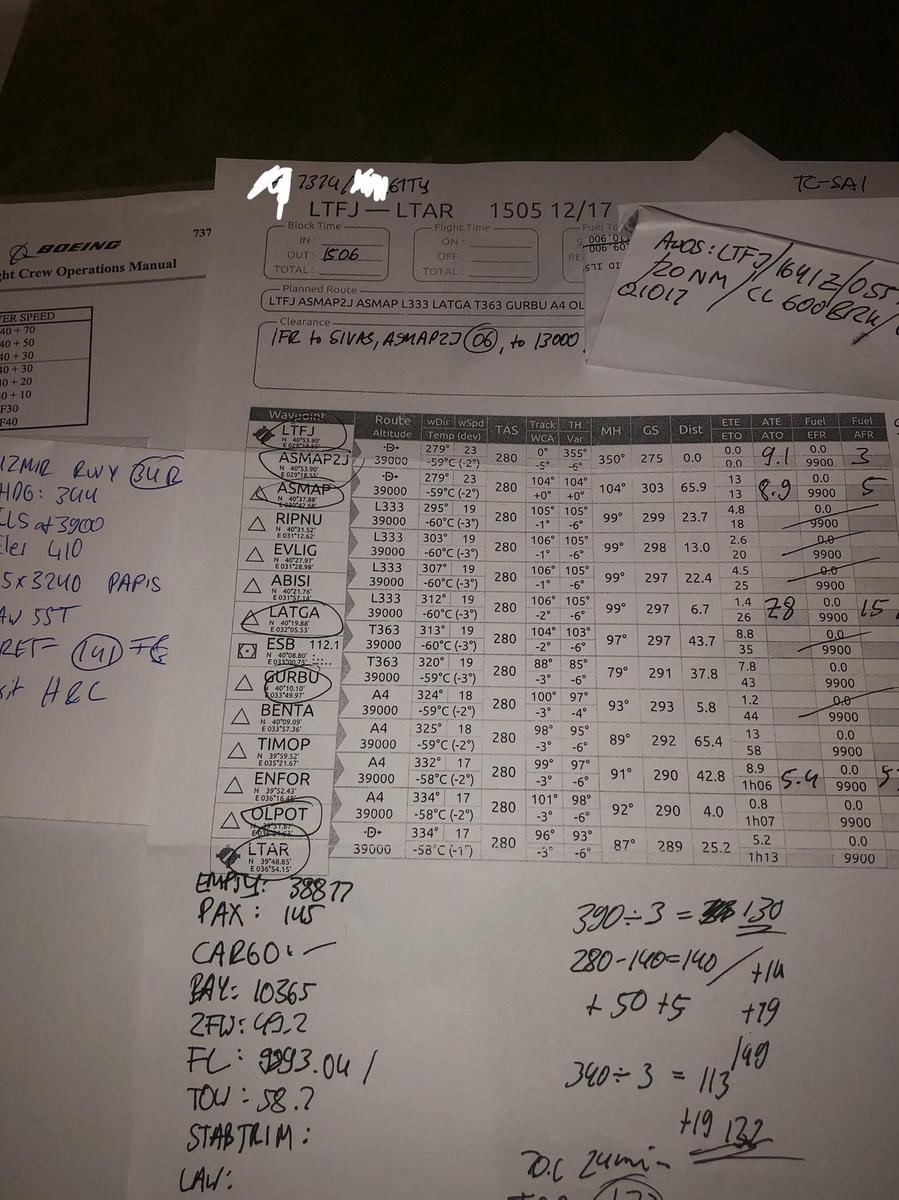 7374/ 61TY
TC-SAI
LTFJ — LTAR 1505 12/17
Block Time
IN :
OUT : 1506
TOTAL :
Flight Time
ON :
OFF :
TOTAL :
Planned Route
LTFJ ASMAP2J ASMAP L333 LATGA T363 GURBU A4 OL
Clearance
IFR to SIVAS, ASMAP2J 06, to 13000
AWOS: LTFJ/1641Z/055
/20 NM / CL 600 BRK/
Q1012
BOEING 737
ght Crew Operations Manual
ER SPEED
40 + 70
40 + 50
40 + 30
40 + 30
40 + 20
40 + 10
F30
F40
IZMIR RWY 34R
HDG: 344
ILS at 3900
Elev 410
5 x 3240 PAPIS
Waypoint Route Altitude wDir wSpd Temp (dev) TAS Track TH WCA Var MH GS Dist ETE ATE Fuel Fuel ETO ATO EFR AFR
LTFJ N 40°53.90'
ASMAP2J -D- 279° 23 280 0° 355° 350° 275 0.0 0.0 9.1 0.0 3
N 40°53.90' 39000 -59°C (-2°) -5° -6° 0.0 9900
ASMAP -D- 279° 23 280 104° 104° 104° 303 65.9 13 8.9 0.0 5
N 40°37.88' 39000 -59°C (-2°) +0° +0° 13 9900
RIPNU L333 295° 19 280 105° 105° 99° 299 23.7 4.8 0.0
N 40°31.52' E 031°12.62' 39000 -60°C (-3°) -1° -6° 18 9900
EVLIG L333 303° 19 280 106° 105° 99° 298 13.0 2.6 0.0
N 40°27.97' E 031°28.98' 39000 -60°C (-3°) -1° -6° 20 9900
ABISI L333 307° 19 280 106° 105° 99° 297 22.4 4.5 0.0
N 40°21.76' E 031°57.14' 39000 -60°C (-3°) -1° -6° 25 9900
LATGA L333 312° 19 280 106° 105° 99° 297 6.7 1.4 28 0.0 15
N 40°19.88' E 032°05.53' 39000 -60°C (-3°) -2° -6° 26 9900
ESB 112.1 T363 313° 19 280 104° 103° 97° 297 43.7 8.8 0.0
N 40°08.80' E 033°00.75' 39000 -60°C (-3°) -2° -6° 35 9900
GURBU T363 320° 19 280 88° 85° 79° 291 37.8 7.8 0.0
N 40°10.10' E 033°49.97' 39000 -59°C (-3°) -3° -6° 43 9900
BENTA A4 324° 18 280 100° 97° 93° 293 5.8 1.2 0.0
N 40°09.09' E 033°57.36' 39000 -59°C (-2°) -3° -4° 44 9900
TIMOP A4 325° 18 280 98° 95° 89° 292 65.4 13 0.0
N 39°59.52' E 035°21.67' 39000 -59°C (-2°) -3° -6° 58 9900
ENFOR A4 332° 17 280 99° 97° 91° 290 42.8 8.9 5.4 0.0
N 39°52.43' 39000 -58°C (-2°) -3° -6° 1h06 9900
OLPOT A4 334° 17 280 101° 98° 92° 290 4.0 0.8 0.0
39000 -58°C (-2°) -3° -6° 1h07 9900
LTAR -D- 334° 17 280 96° 93° 87° 289 25.2 5.2 0.0
N 39°48.85' E 036°54.15' 39000 -58°C (-1°) -3° -6° 1h13 9900
EMPTY: 38877
PAX: 145
CARGO: —
PAY: 10365
ZFW: 49.2
TOW: 58.2
STAB TRIM:
LAW:
390÷3 = 130
280-140=140 / +14
+ 50 +5 +19
149
340÷3 = 113
+19 132